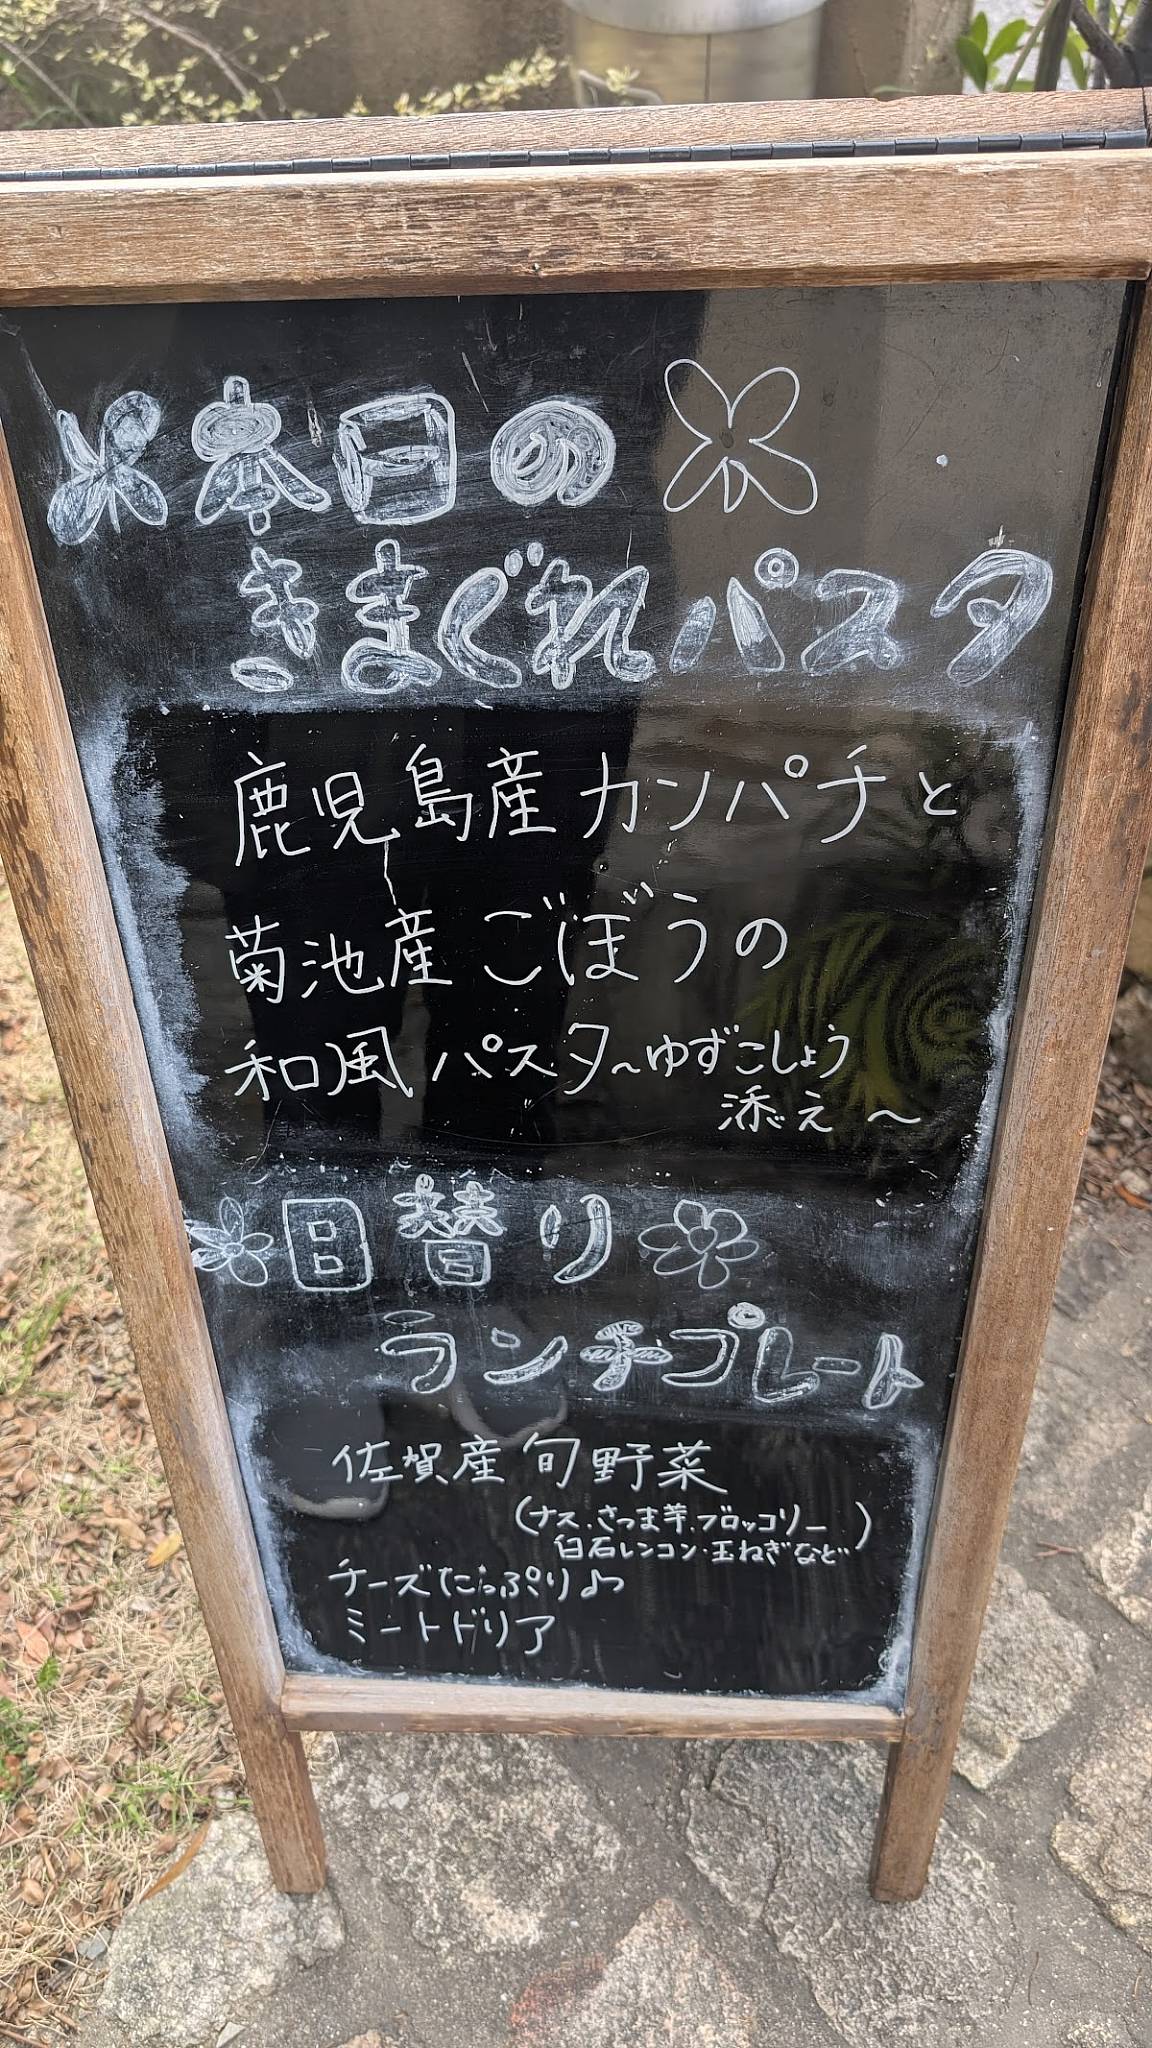 本日の
きまぐれパスタ
鹿児島産カンパチと
菊池産ごぼうの
和風パスタ～ゆずこしょう
添え～
日替り
ランチプレート
佐賀産旬野菜
(ナス、さつま芋、ブロッコリー
白石レンコン・玉ねぎなど)
チーズたっぷり♪
ミートドリア